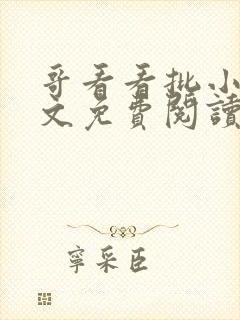 哥看看批小
文免費閱讀
寧采臣